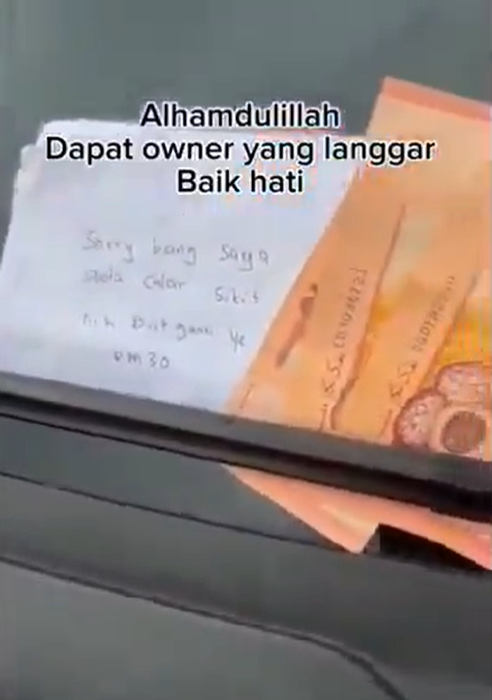 Alhamdulillah
Dapat owner yang langgar
Baik hati
Sorry bang saya
calar sikit
nih Duit ganti ye
RM30